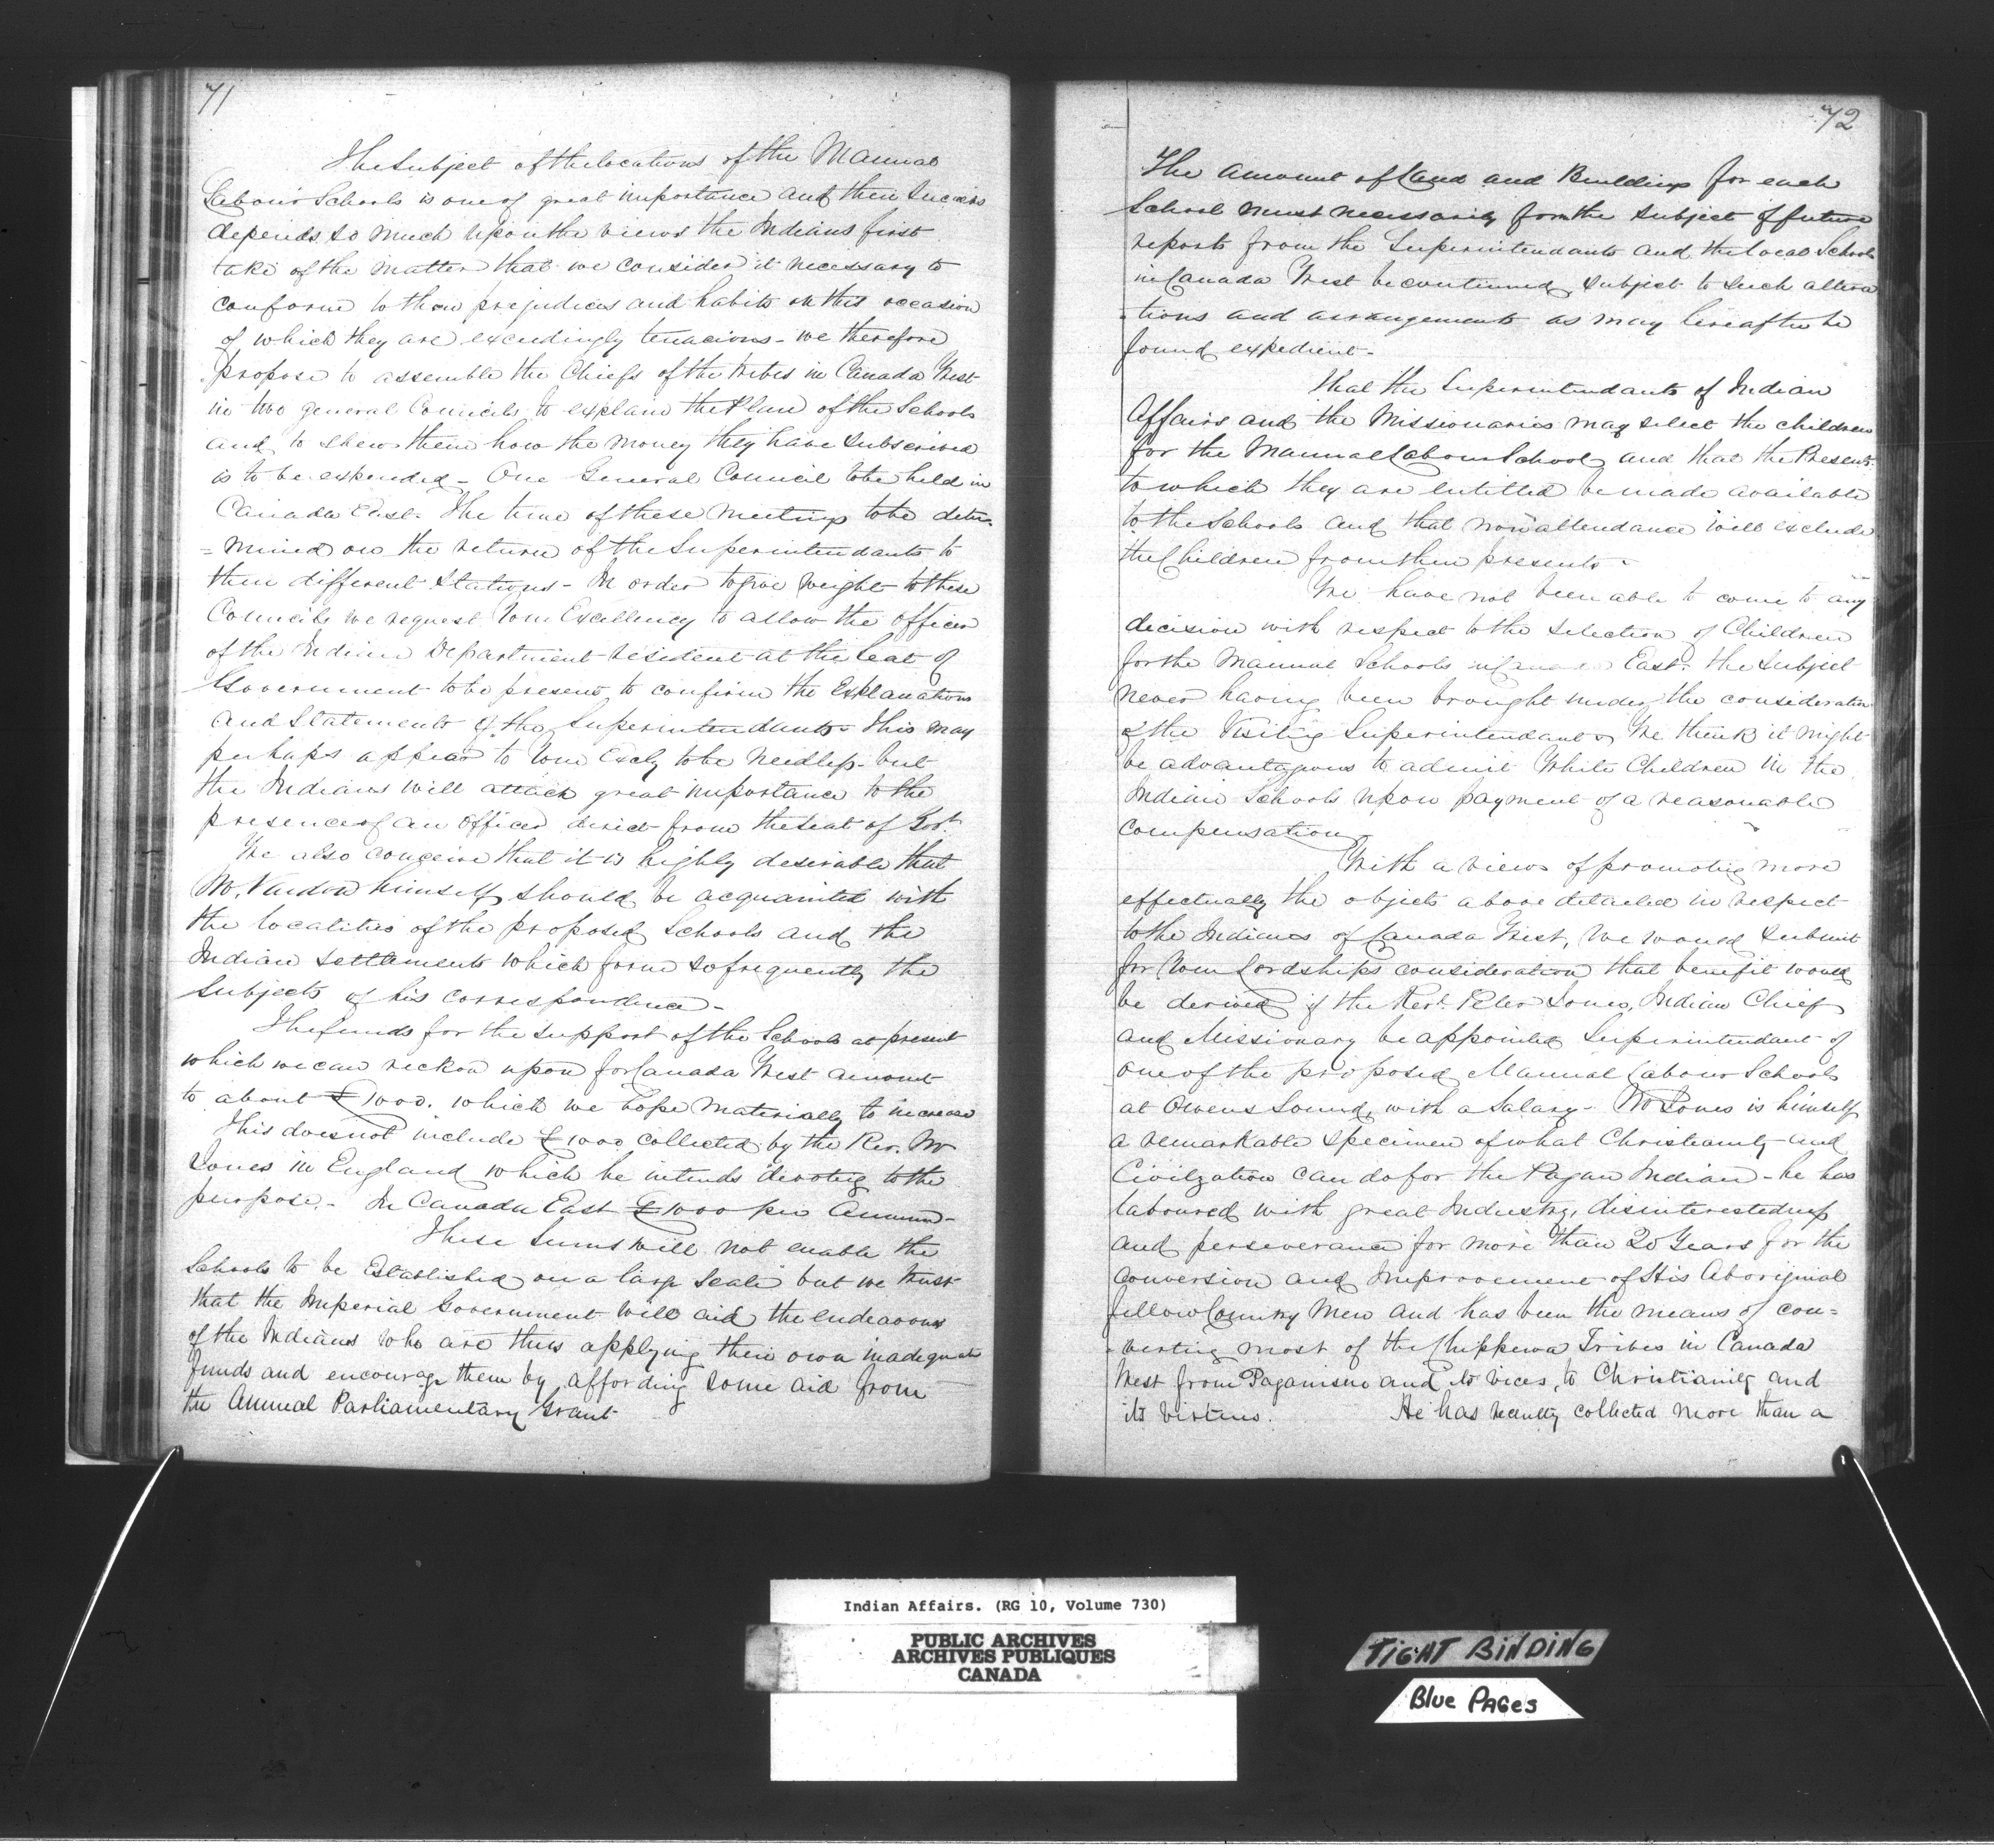 71
The Subject of the locations of the Manual
Labour Schools is one of great importance and their Success
depends so much upon the views the Indians first
take of the matter that we consider it necessary to
conform to their prejudices and habits on this occasion
of which they are exceedingly tenacious - we therefore
propose to assemble the Chiefs of the tribes in Canada West
in two general Councils to explain the Plan of the Schools
and to shew them how the money they have subscribed
is to be expended - One General Council to be held in
Canada East. The time of these meetings to be deter-
=mined on the return of the Superintendants to
their different stations - In order to give weight to these
Councils we request Your Excellency to allow the officer
of the Indian Department resident at the Seat of
Government to be present to confirm the Explanations
and Statements of the Superintendants. This may
perhaps appear to Your Excly to be needless - but
the Indians will attach great importance to the
presence of an officer direct from the Seat of Govt.
We also conceive that it is highly desirable that
Mr. Vardon himself should be acquainted with
the localities of the proposed Schools and the
Indian settlements which form so frequently the
Subjects of his correspondence -
The funds for the support of the Schools at present
which we can reckon upon for Canada West amount
to about £1000. which we hope materially to increase
This does not include £1000 collected by the Rev. Mr
Jones in England which he intends devoting to the
purpose. - In Canada East £1000 per Annum -
These Sums will not enable the
Schools to be Established on a large Scale but we trust
that the Imperial Government will aid the endeavours
of the Indians who are thus applying their own inadequate
funds and encourage them by affording some aid from
the Annual Parliamentary Grant
72
The amount of Land and Buildings for each
School must necessarily form the subject of future
reports from the Superintendants and the local Schools
in Canada West be continued, subject to such altera
-tions and arrangements as may hereafter be
found expedient -
That the Superintendants of Indian
Affairs and the Missionaries may select the children
for the Manual Labour School, and that the Presents
to which they are entitled be made available
to the Schools and that non attendance will exclude
the Children from their presents -
We have not been able to come to any
decision with respect to the selection of Children
for the Manual Schools in Canada East. the subject
never having been brought under the consideration
of the Visiting Superintendants We think it might
be advantageous to admit White Children in the
Indian Schools upon payment of a reasonable
compensation
With a view of promoting more
effectually the objects above detailed in respect
to the Indians of Canada West, we would submit
for Your Lordships consideration that benefit would
be derived if the Revd. Peter Jones, Indian Chief
and Missionary be appointed Superintendant of
one of the proposed Manual Labour Schools
at Owens Sound, with a Salary - Mr Jones is himself
a remarkable specimen of what Christianity and
Civilization can do for the Pagan Indian - he has
laboured with great Industry, disinterestedness
and perseverance for more than 20 Years for the
conversion and Improvement of His Aboriginal
fellow Country Men and has been the means of con=
-verting most of the Chippewa Tribes in Canada
West from Paganism and its vices, to Christianity and
its virtues. He has recently collected more than a
Indian Affairs. (RG 10, Volume 730)
PUBLIC ARCHIVES
ARCHIVES PUBLIQUES
CANADA
TIGHT BINDING
Blue PAGes